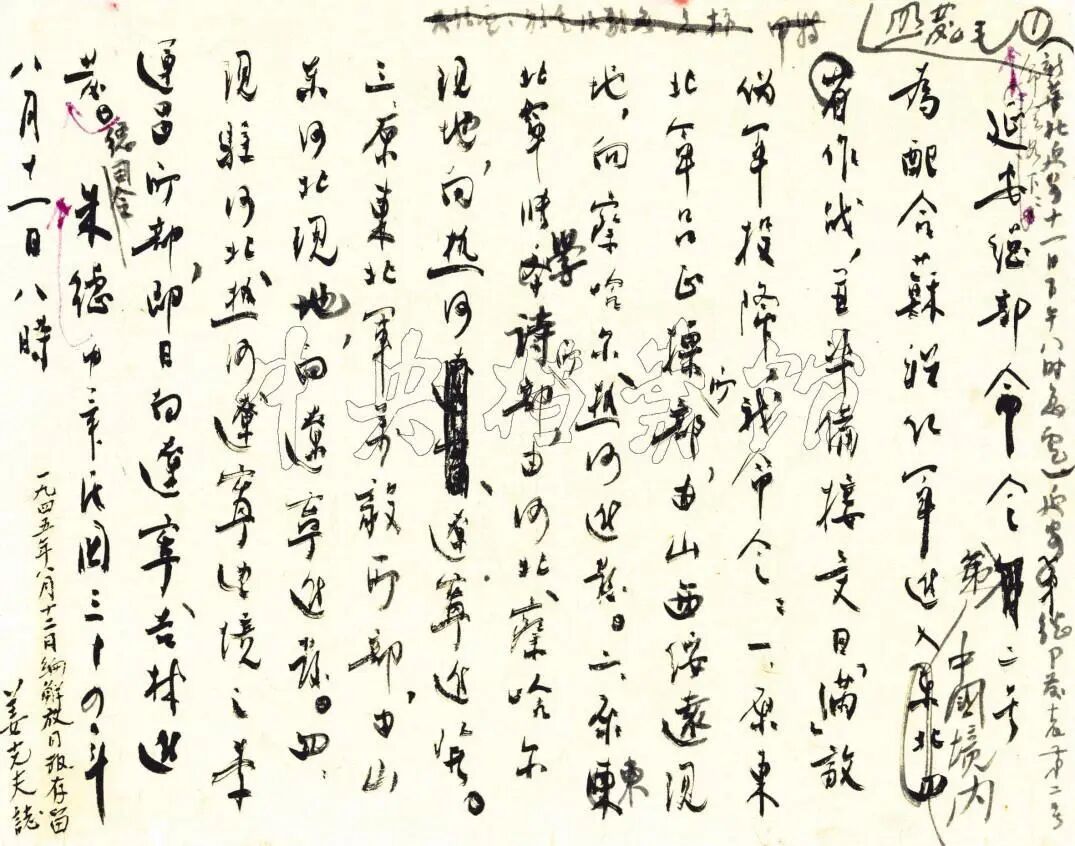 延安總部命令第二号
為配合蘇聯紅軍進入東北四
中國境内
省作战，並準備接受日「滿」敌
偽軍投降，我命令：一、原東
北軍呂正操所部，由山西綏遠现
地，向察哈尔热河進發。二、原東
北軍張學詩所部，由河北、察哈尔
现地，向热河、遼寧進發。
三、原東北軍萬毅所部，由山
东河北现地，向遼寧進發。四、
现駐河北热河遼寧边境之李
運昌所部，即日向遼寧吉林進
發。總司令 朱德 中華民國三十四年
八月十一日八時
一九四五年八月十二日編解放日報存留
姜克夫誌
中央档案馆